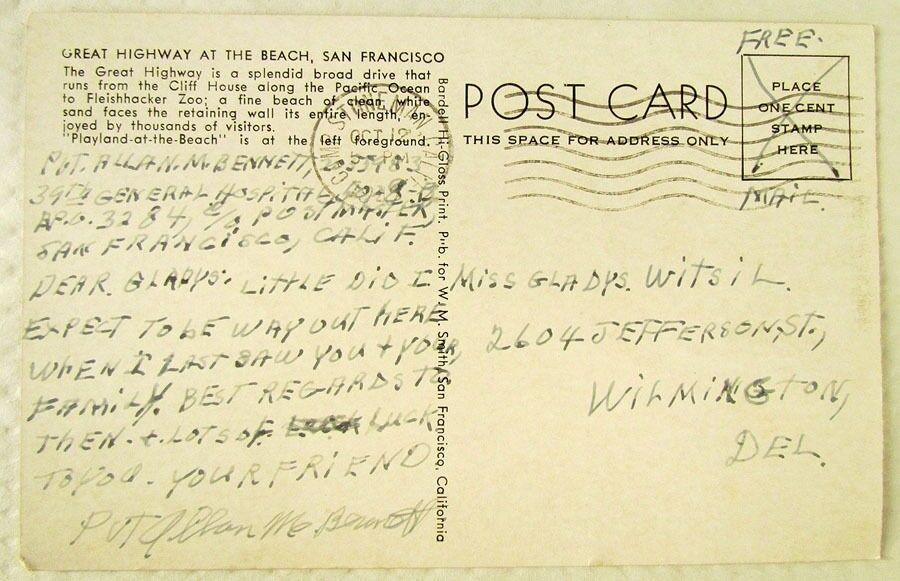 GREAT HIGHWAY AT THE BEACH, SAN FRANCISCO
The Great Highway is a splendid broad drive that
runs from the Cliff House along the Pacific Ocean
to Fleishhacker Zoo; a fine beach of clean, white
sand faces the retaining wall its entire length, en-
joyed by thousands of visitors.
"Playland-at-the-Beach" is at the left foreground.
PVT. ALLAN. M. BENNETT,
39TH GENERAL HOSPITAL
A.P.O. 3284, C/o POSTMASTER,
SAN FRANCISCO, CALIF.
DEAR. GLADYS. LITTLE DID I
EXPECT TO BE WAY OUT HERE
WHEN I LAST SAW YOU + YOUR,
FAMILY. BEST REGARDS TO
THEM. + LOTS OF LUCK
TO YOU. YOUR FRIEND
PVT Allan M. Bennett
Bardell Hi-Gloss Print. Pub. for W. M. Smith, San Francisco, California
OCT 12
POST CARD
THIS SPACE FOR ADDRESS ONLY
FREE.
PLACE
ONE CENT
STAMP
HERE
MAIL.
MISS GLADYS. WITSIL.
2604 JEFFERSON, ST.,
WILMINGTON,
DEL.